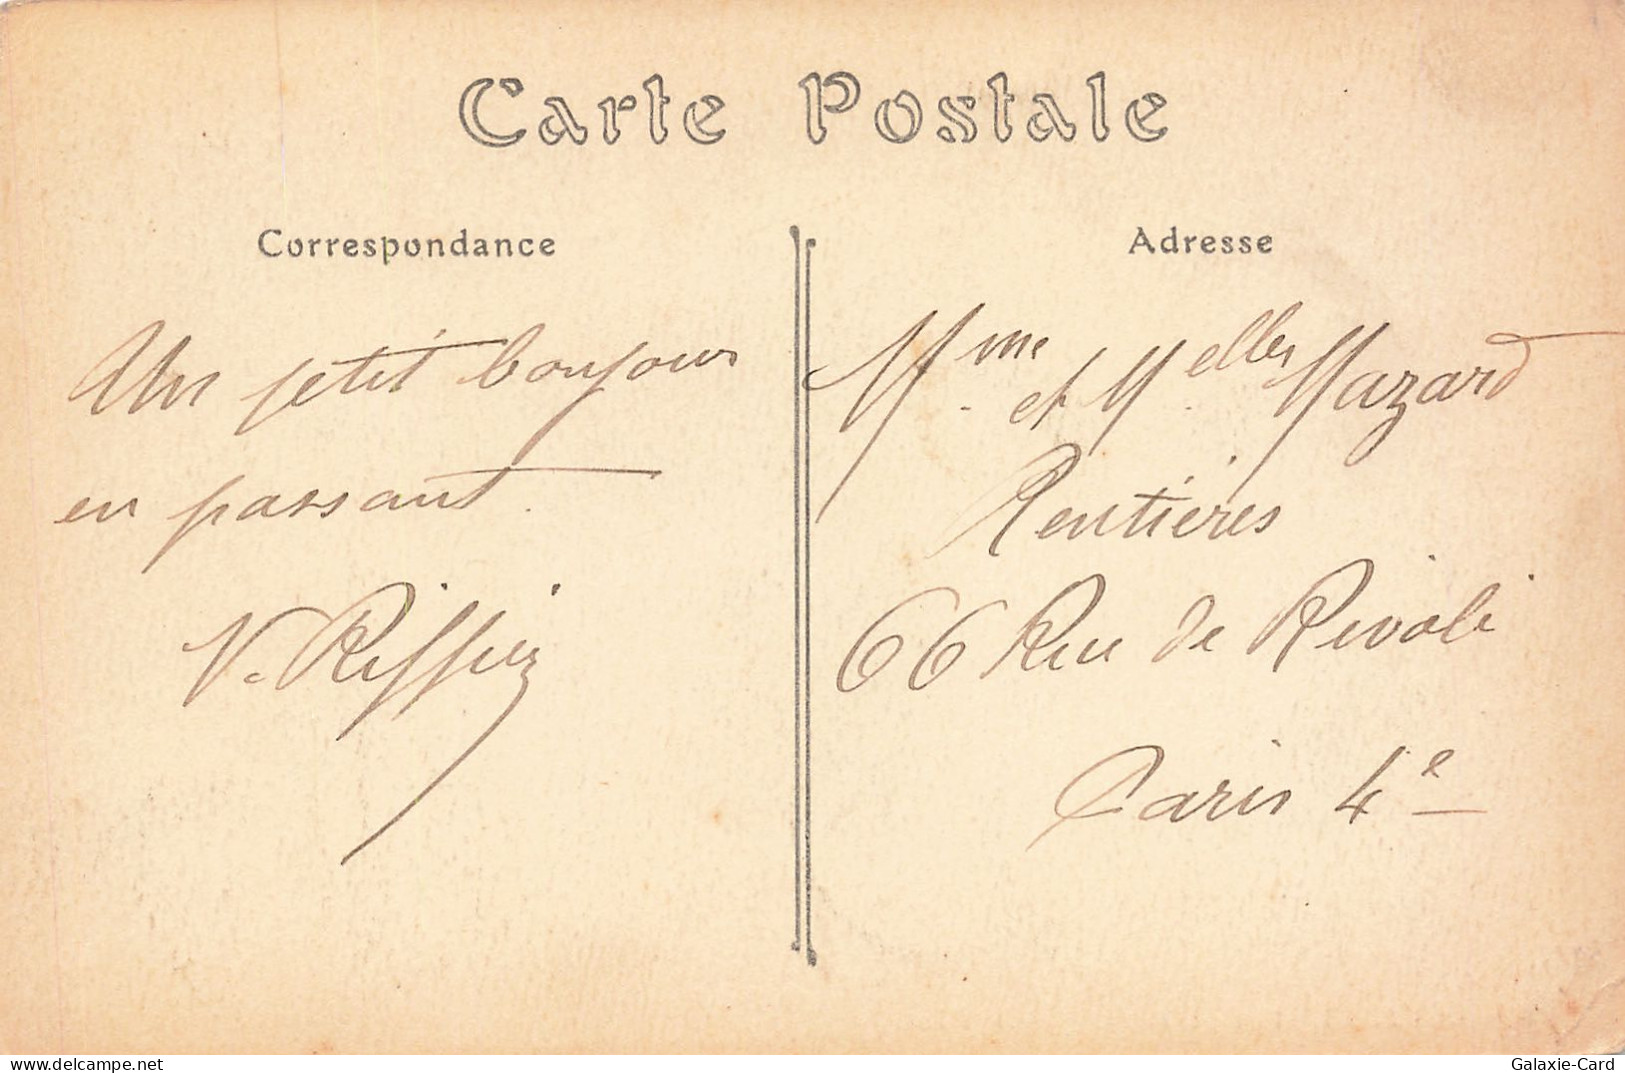 Carte Postale
Correspondance
Un petit bonjour
en passant.
V. Riffier
Adresse
Mme. et Melles Mazard
Rentières
66 Rue de Rivoli
Paris 4e
delcampe.net
Galaxie-Card